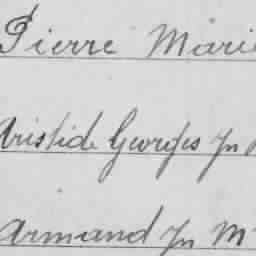 Pierre Marie
Aristide Georges Jn
Armand Jn M